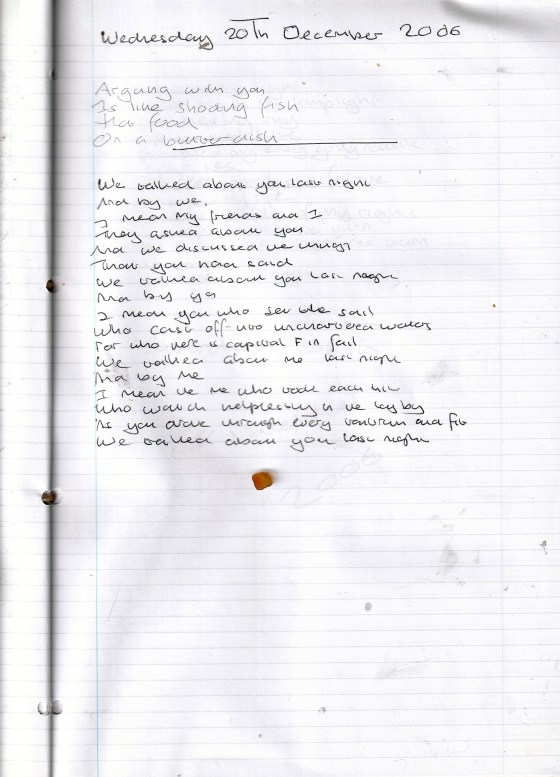 Wednesday 20Th December 2006
Arguing with you
Is like shooting fish
For food
On a butter dish
We talked about you last night
And by we,
I mean My friends and I
They asked about you
And we discussed the things
That you had said
We talked about you last night
And by you
I mean you who set the sail
Who cast off into unchartered waters
For who there is capital F in fail
We talked about me last night
And by me
I mean the me who took each hit
Who watch helplessly in the lay by
As you drove through every tantrum and fit
We talked about you last night
2006